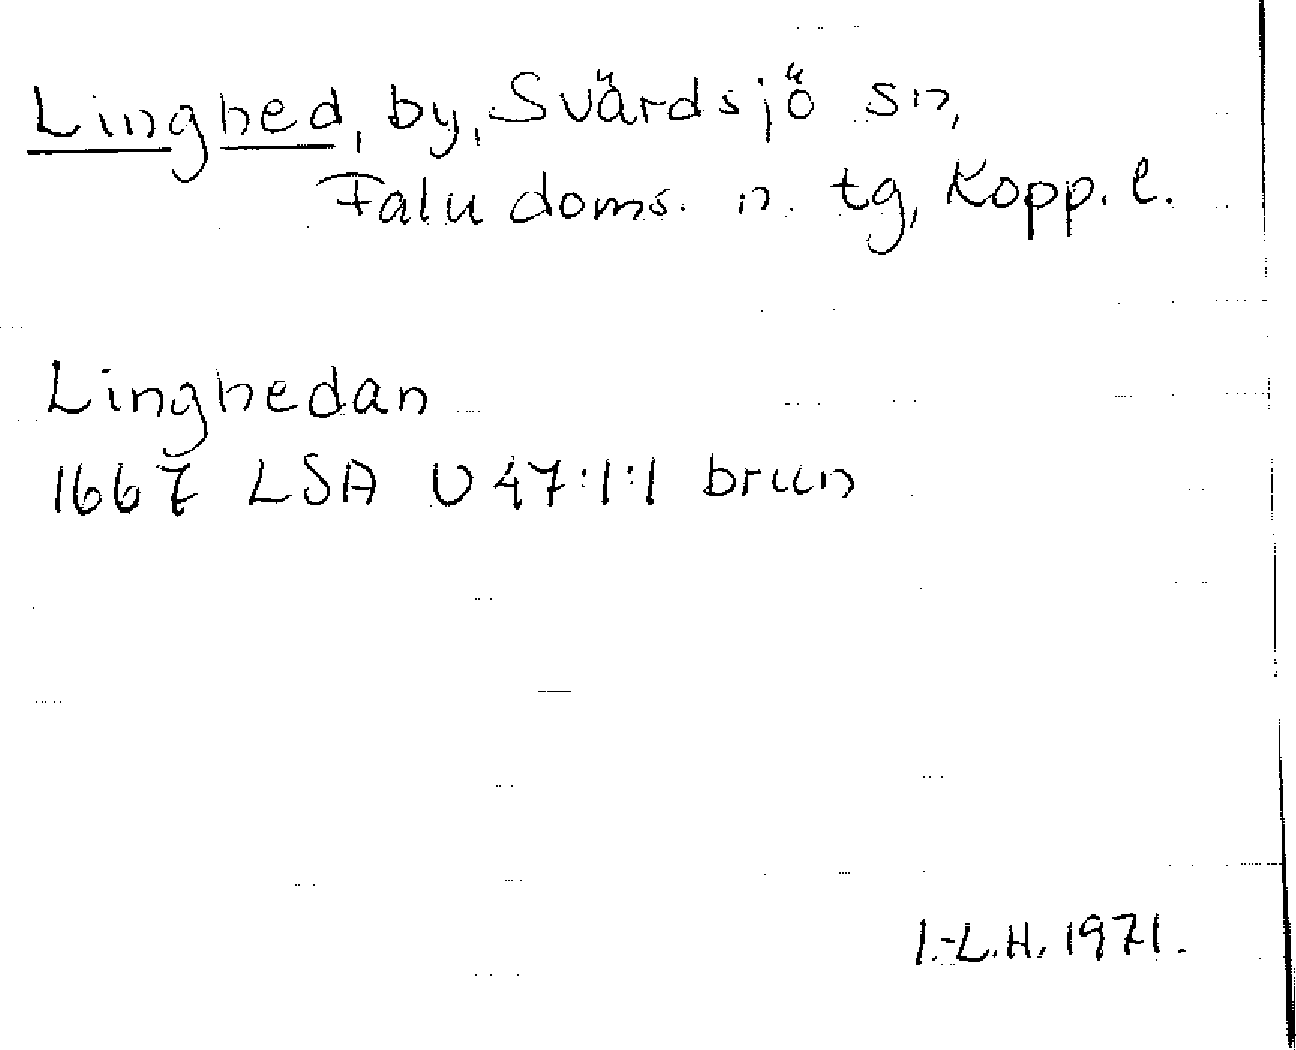 Linghed, by, Svärdsjö sn,
Falu doms. n. tg, Kopp. l.
Linghedan
1667 LSA U 47:1:1 brun
I.-L.H. 1971.